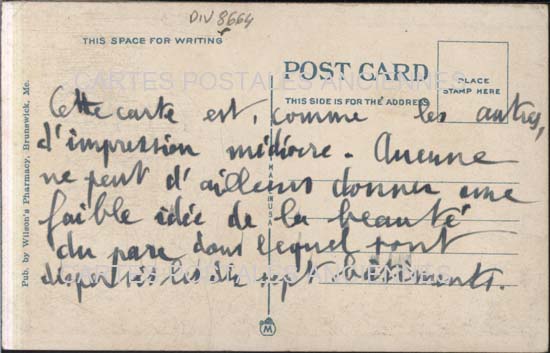 DIV 8664
THIS SPACE FOR WRITING
POST CARD
THIS SIDE IS FOR THE ADDRESS
PLACE
STAMP HERE
CARTES POSTALES ANCIENNES
Cette carte est, comme les autres,
d'impression médiocre. Aucune
ne peut d'ailleurs donner une
faible idée de la beauté
du parc dans lequel sont
dispersés les dix sept bâtiments.
CARTES POSTALES ANCIENNES
Pub. by Wilson's Pharmacy, Brunswick, Me.
M